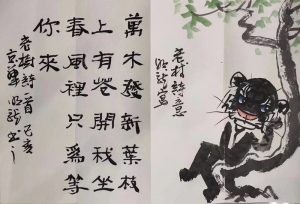 萬木發新葉枝
上有花開我坐
春風裡只為等
你來
老樹詩一首己亥
老樹詩意